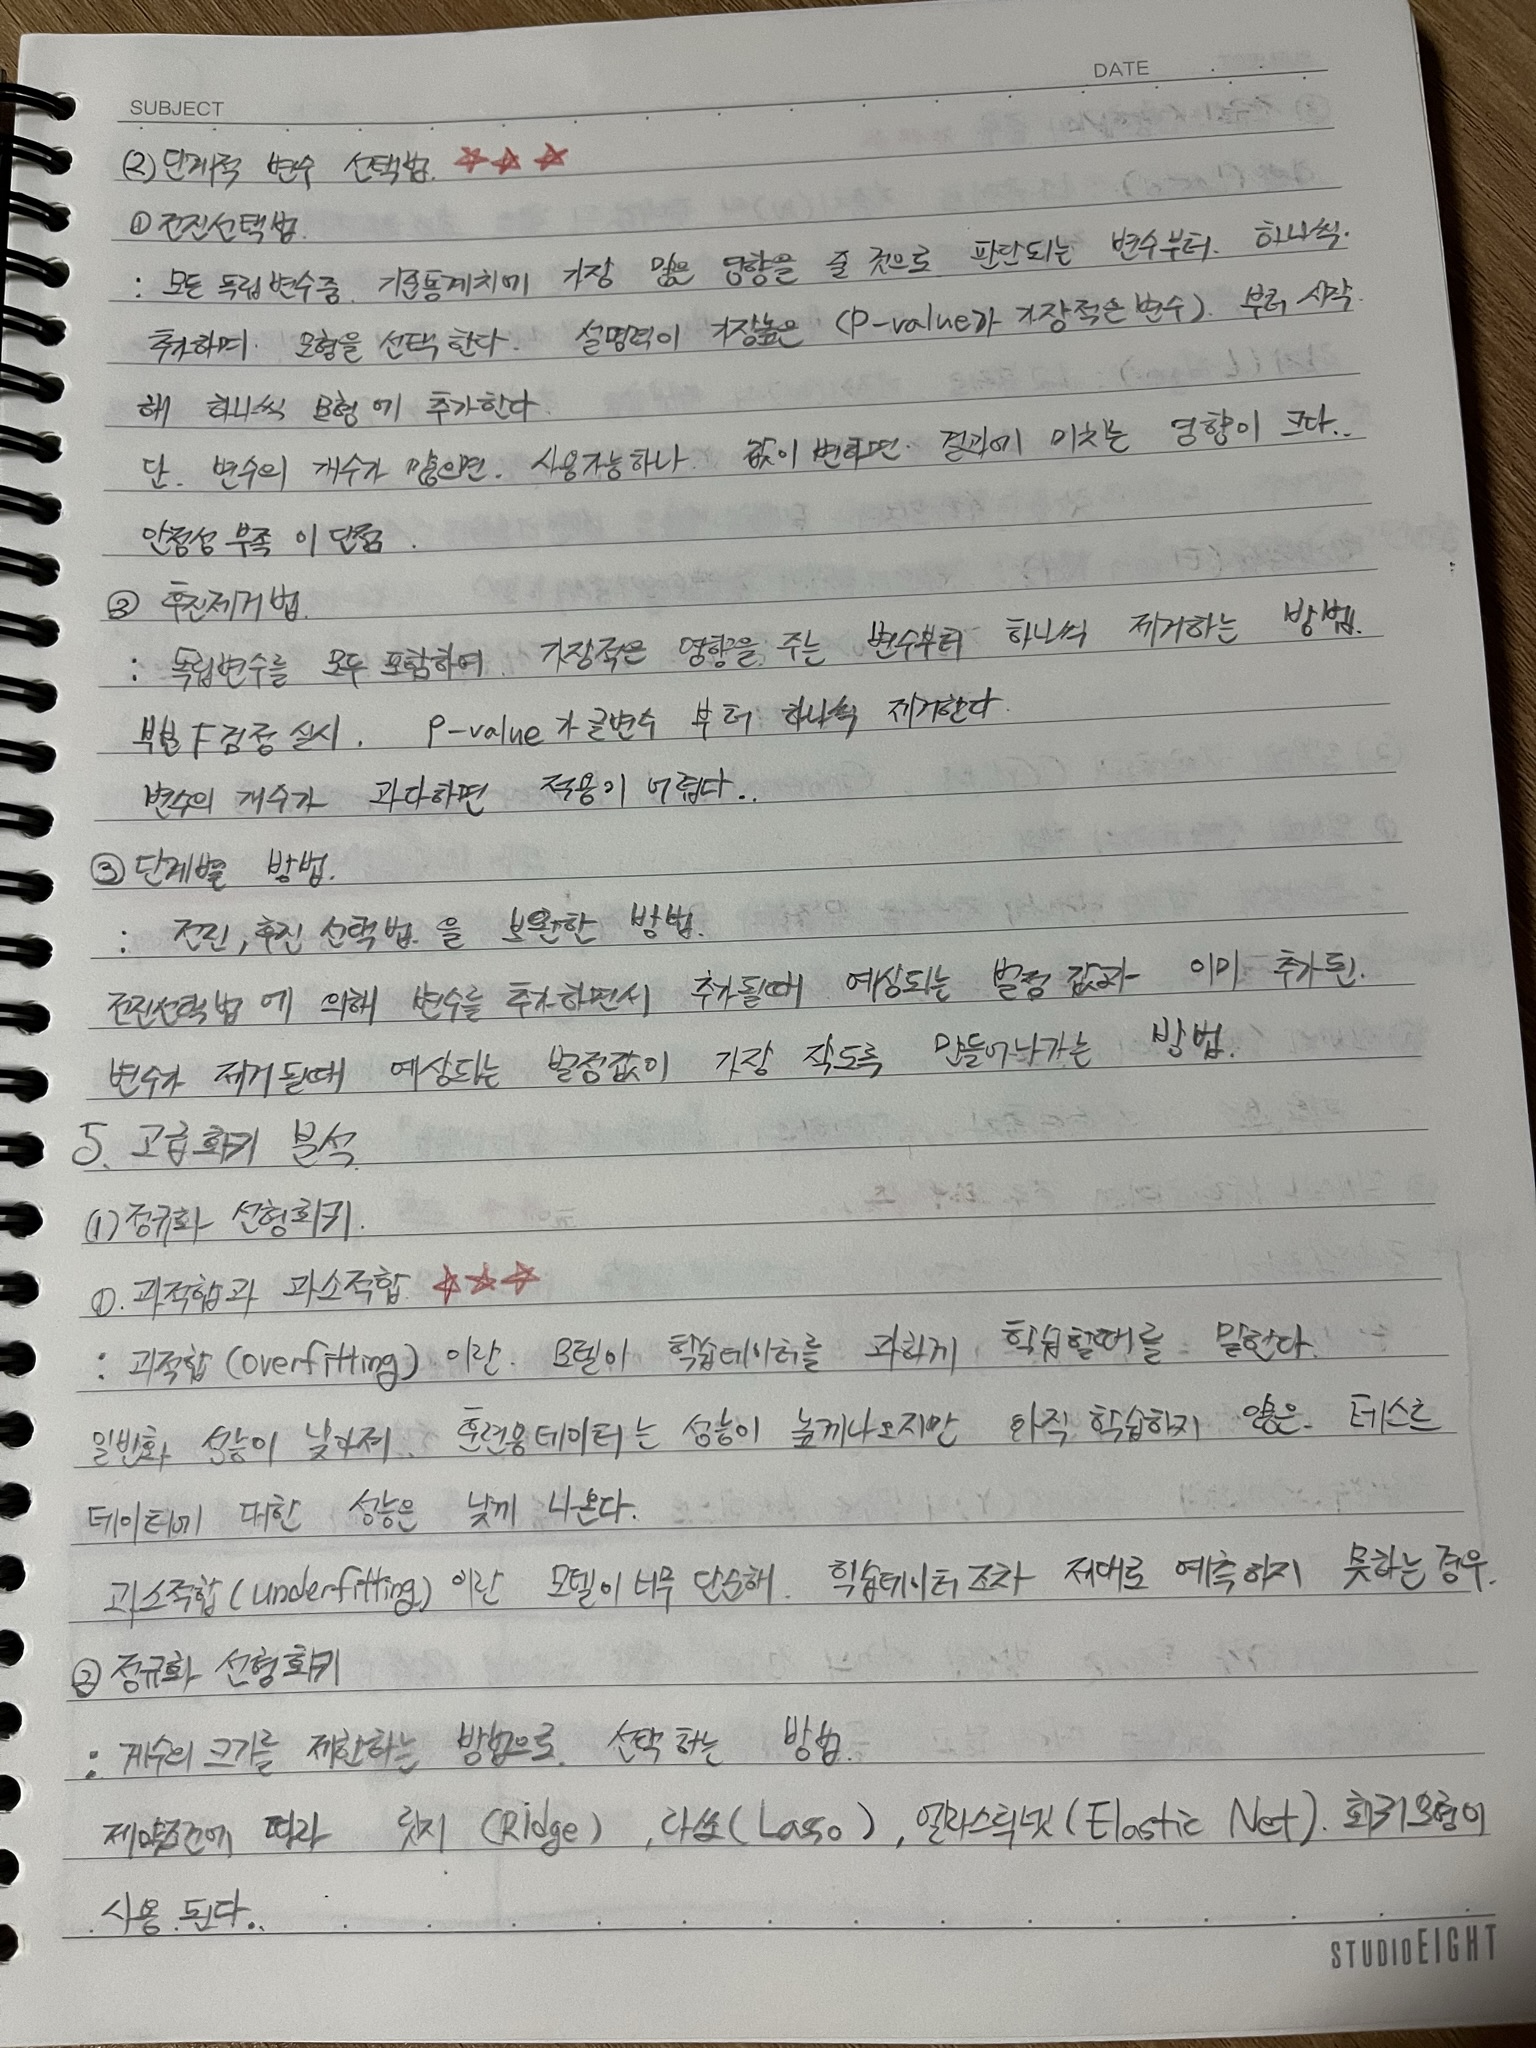 SUBJECT
DATE
(2) 단계적 변수 선택법. ☆☆☆
① 전진선택법.
: 모든 독립변수중. 기준통계치에 가장 많은 영향을 줄 것으로 판단되는 변수부터. 하나씩.
추가하며. 모형을 선택한다. 설명력이 가장높은 (P-value가 가장적은변수). 부터 시작.
해 하나씩 모형에 추가한다.
단. 변수의 개수가 많으면. 사용가능하나. 값이 변하면. 결과에 미치는 영향이 크다..
안정성 부족 이 단점.
② 후진제거법.
: 독립변수를 모두 포함하여. 가장적은 영향을 주는 변수부터 하나씩 제거하는 방법.
부분 F검정 실시. P-value가 클변수 부터 하나씩 제거한다.
변수의 개수가 과다하면 적용이 어렵다..
③ 단계별 방법.
: 전진, 후진 선택법.을 보완한 방법.
전진선택법에 의해 변수를 추가하면서 추가될때 예상되는 벌점 값과 이미 추가된.
변수가 제거될때 예상되는 벌점값이 가장 작도록 만들어나가는 방법.
5. 고급회귀 분석.
(1) 정규화 선형회귀.
①. 과적합과 과소적합. ☆☆☆
: 과적합(overfitting) 이란. 모델이 학습데이터를 과하게 학습할때를 말한다.
일반화 성능이 낮아져. 훈련용데이터는 성능이 높게나오지만 아직 학습하지 않은. 테스트
데이터에 대한 성능은 낮게 나온다.
과소적합(underfitting) 이란 모델이 너무 단순해. 학습데이터조차 제대로 예측하지 못하는경우.
② 정규화 선형회귀
: 계수의 크기를 제한하는 방법으로. 선택하는 방법.
제약조건에 따라 릿지 (Ridge), 라쏘(Lasso), 엘라스틱넷(Elastic Net). 회귀모형이
사용.된다..
STUDIOEIGHT